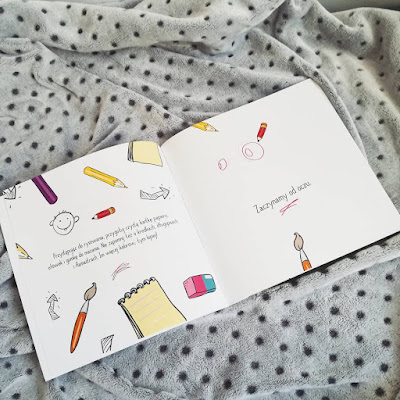 Przystępując do rysowania, przygotuj czystą kartkę papieru,
ołówek i gumkę do mazania. Nie zapomnij też o kredkach, długopisach
i flamastrach. Im więcej kolorów, tym lepiej!
Zaczynamy od oczu.